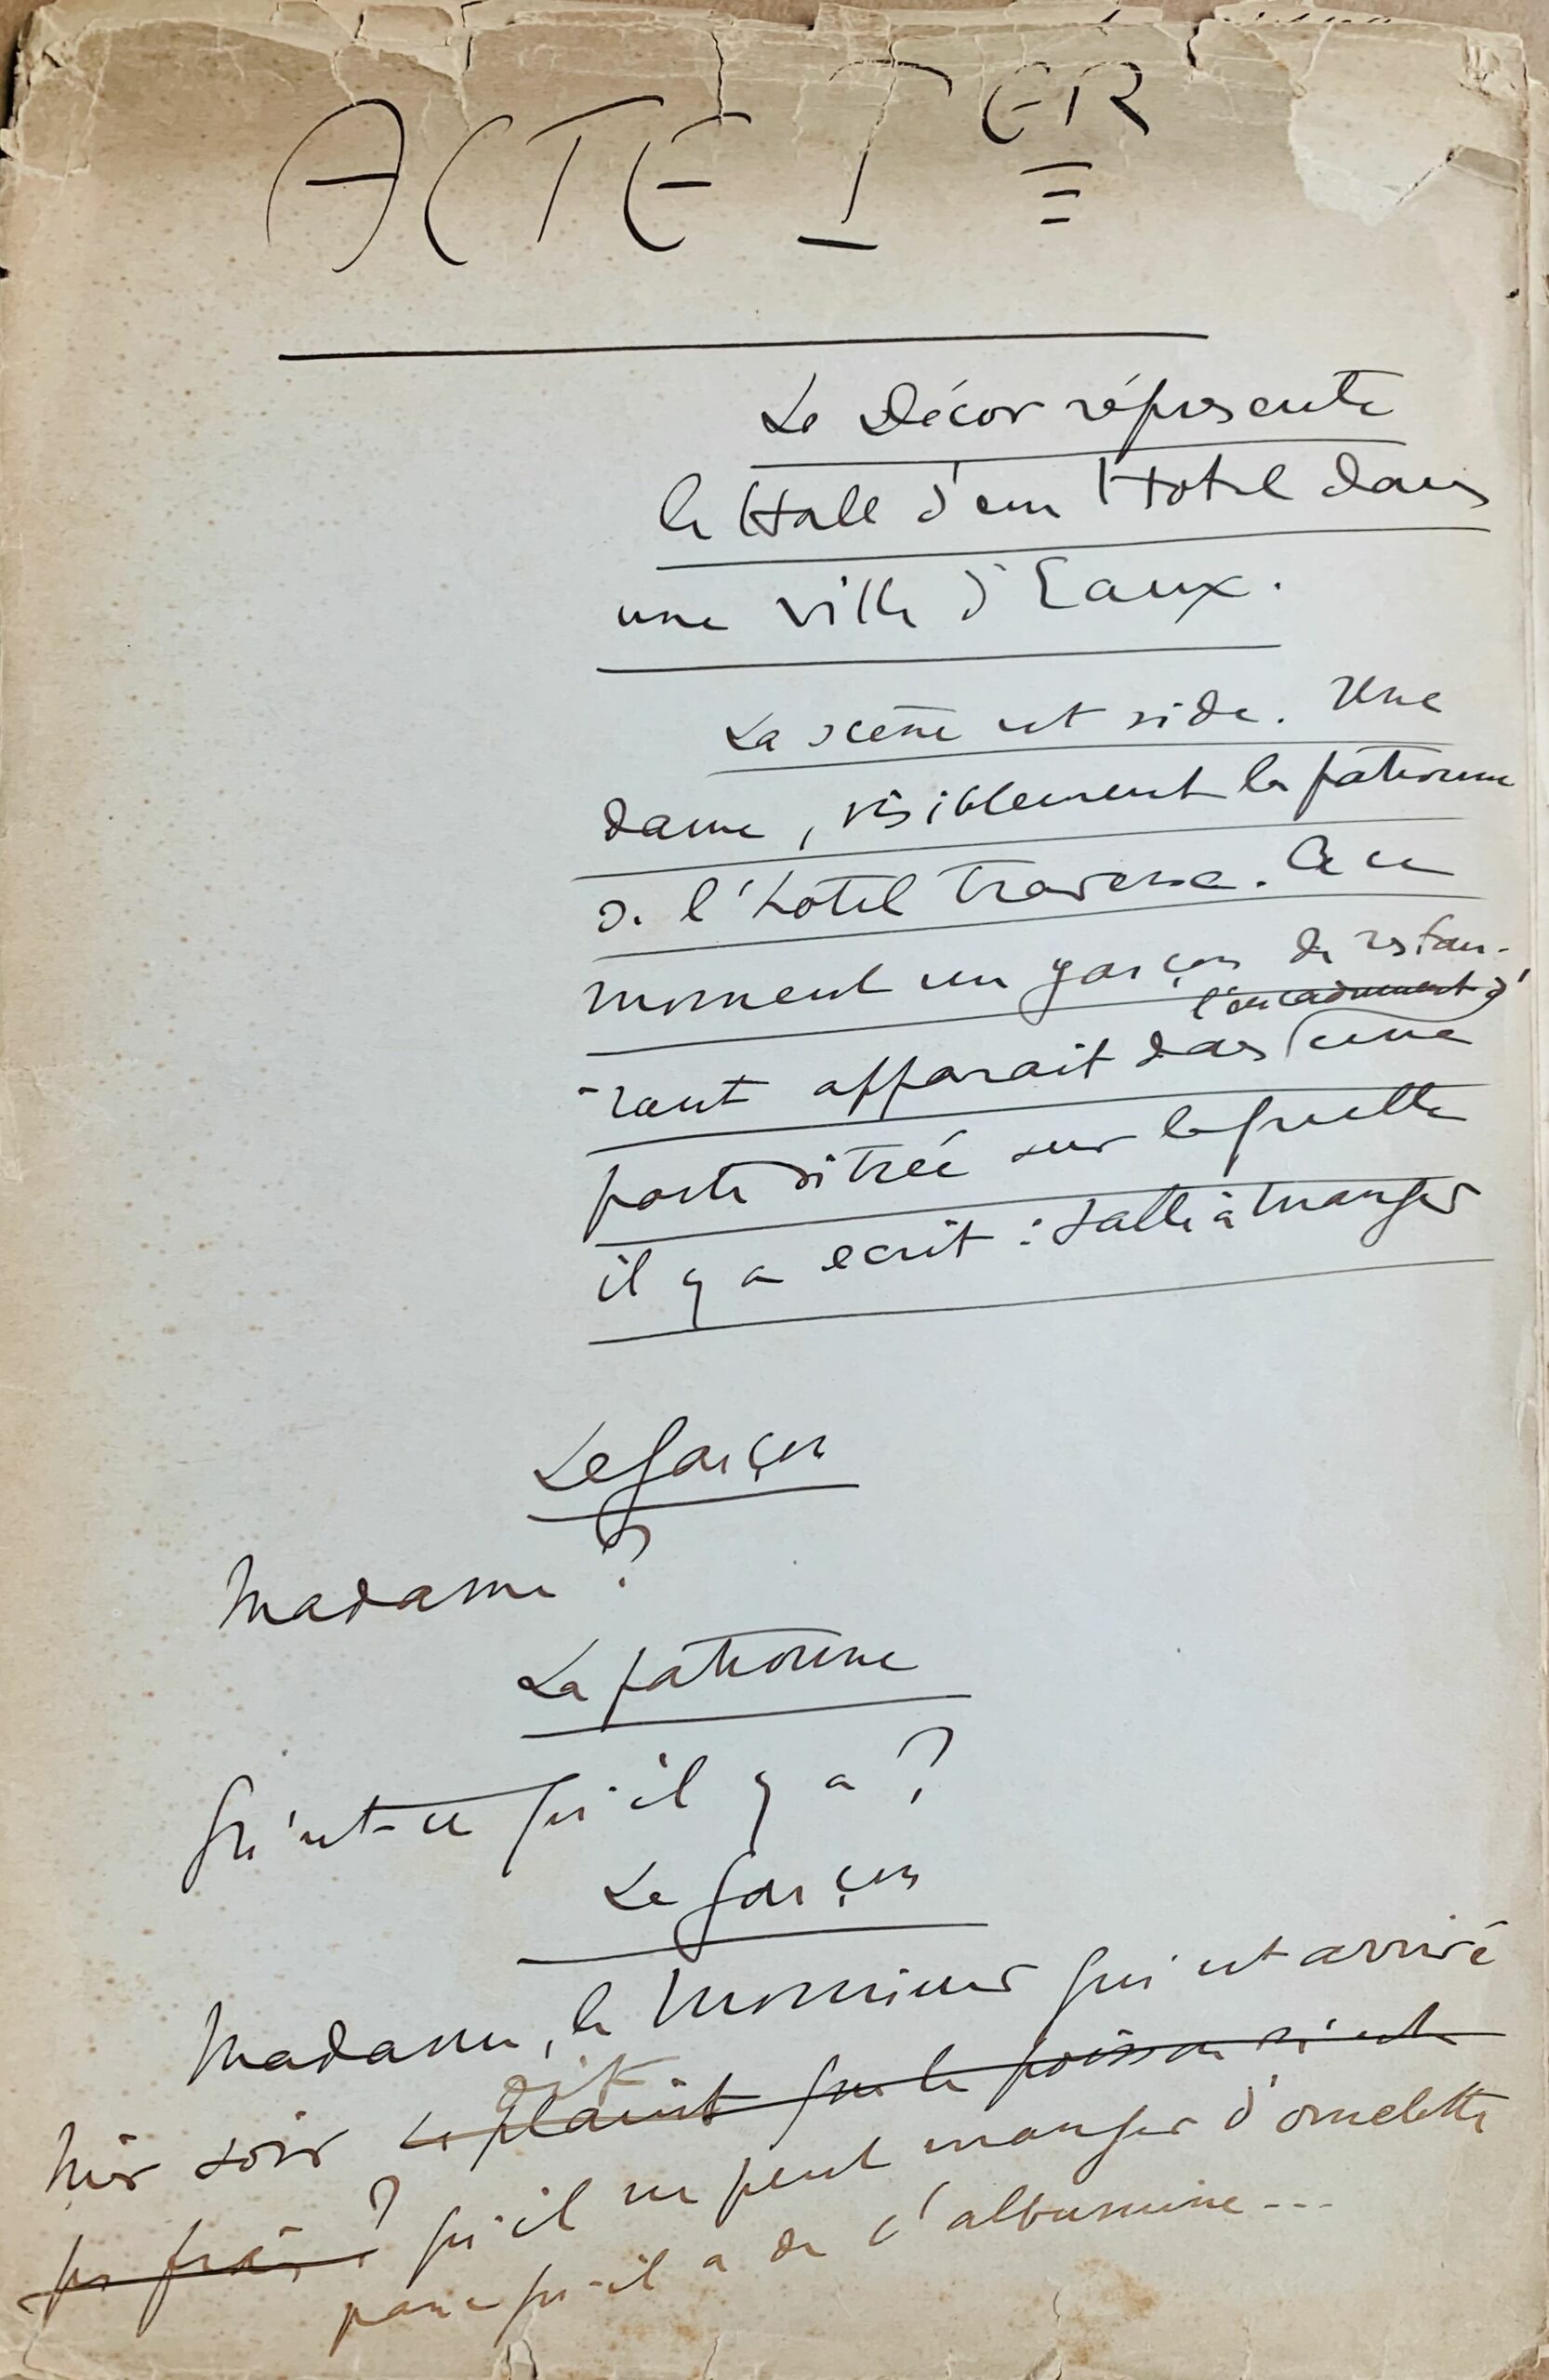 ACTE IER
Le Décor réprésente
le Hall d'un Hotel dans
une ville d'Eaux.
La scène est vide. Une
dame, visiblement la patronne
de l'hotel traverse. A ce
moment un garçon de restau-
l'encadrement d'
rant apparait dans une
porte vitrée sur laquelle
il y a ecrit : Salle à Manger
Le garçon
Madame ?
La patronne
Qu'est-ce qu'il y a ?
Le garçon
Madame, le Monsieur qui est arrivé
dit
hier soir se plaint que le poisson n'est
pas frais ? qu'il ne peut manger d'omelette
parce qu'il a de l'albumine ...